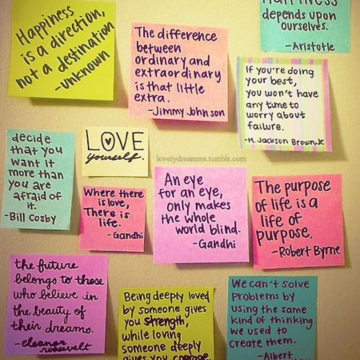 Happiness
is a direction,
not a destination
-unknown
The difference
between
ordinary and
extraordinary
is that little
extra.
-Jimmy Johnson
depends upon
ourselves.
-Aristotle
If you're doing
your best,
you won't have
any time to
worry about
failure.
-H. Jackson Brown, Jr.
decide
that you
want it
more than
you are
afraid of
it.
-Bill Cosby
LOVE
yourself.
lovelydreamms.tumblr.com
Where there
is love,
There is
life.
-Gandhi
An eye
for an eye,
only makes
the whole
world blind.
-Gandhi
The purpose
of life is a
life of
purpose.
-Robert Byrne
the future
belongs to those
who believe in
the beauty of
their dreams.
-eleanor
roosevelt
Being deeply loved
by someone gives
you strength,
while loving
someone deeply
gives you courage.
We can't solve
problems by
using the same
kind of thinking
we used to
create them.
-Albert